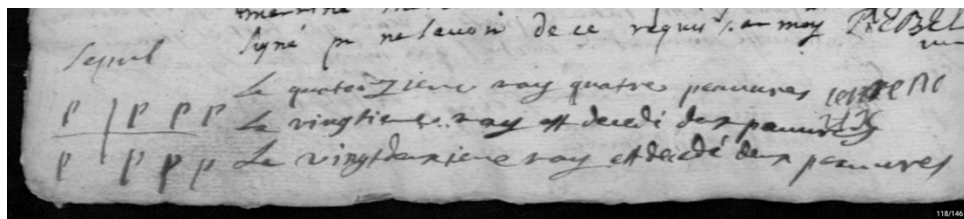 signé pr ne scavoir de ce requis. en moy REBEL
Sepul
Le quatorzieme may quatre pauuures
p p p p Le vingtieme may est decedé deux pauures
p p p p Le vingtdeuxieme may est decedé deux pauures
118/146